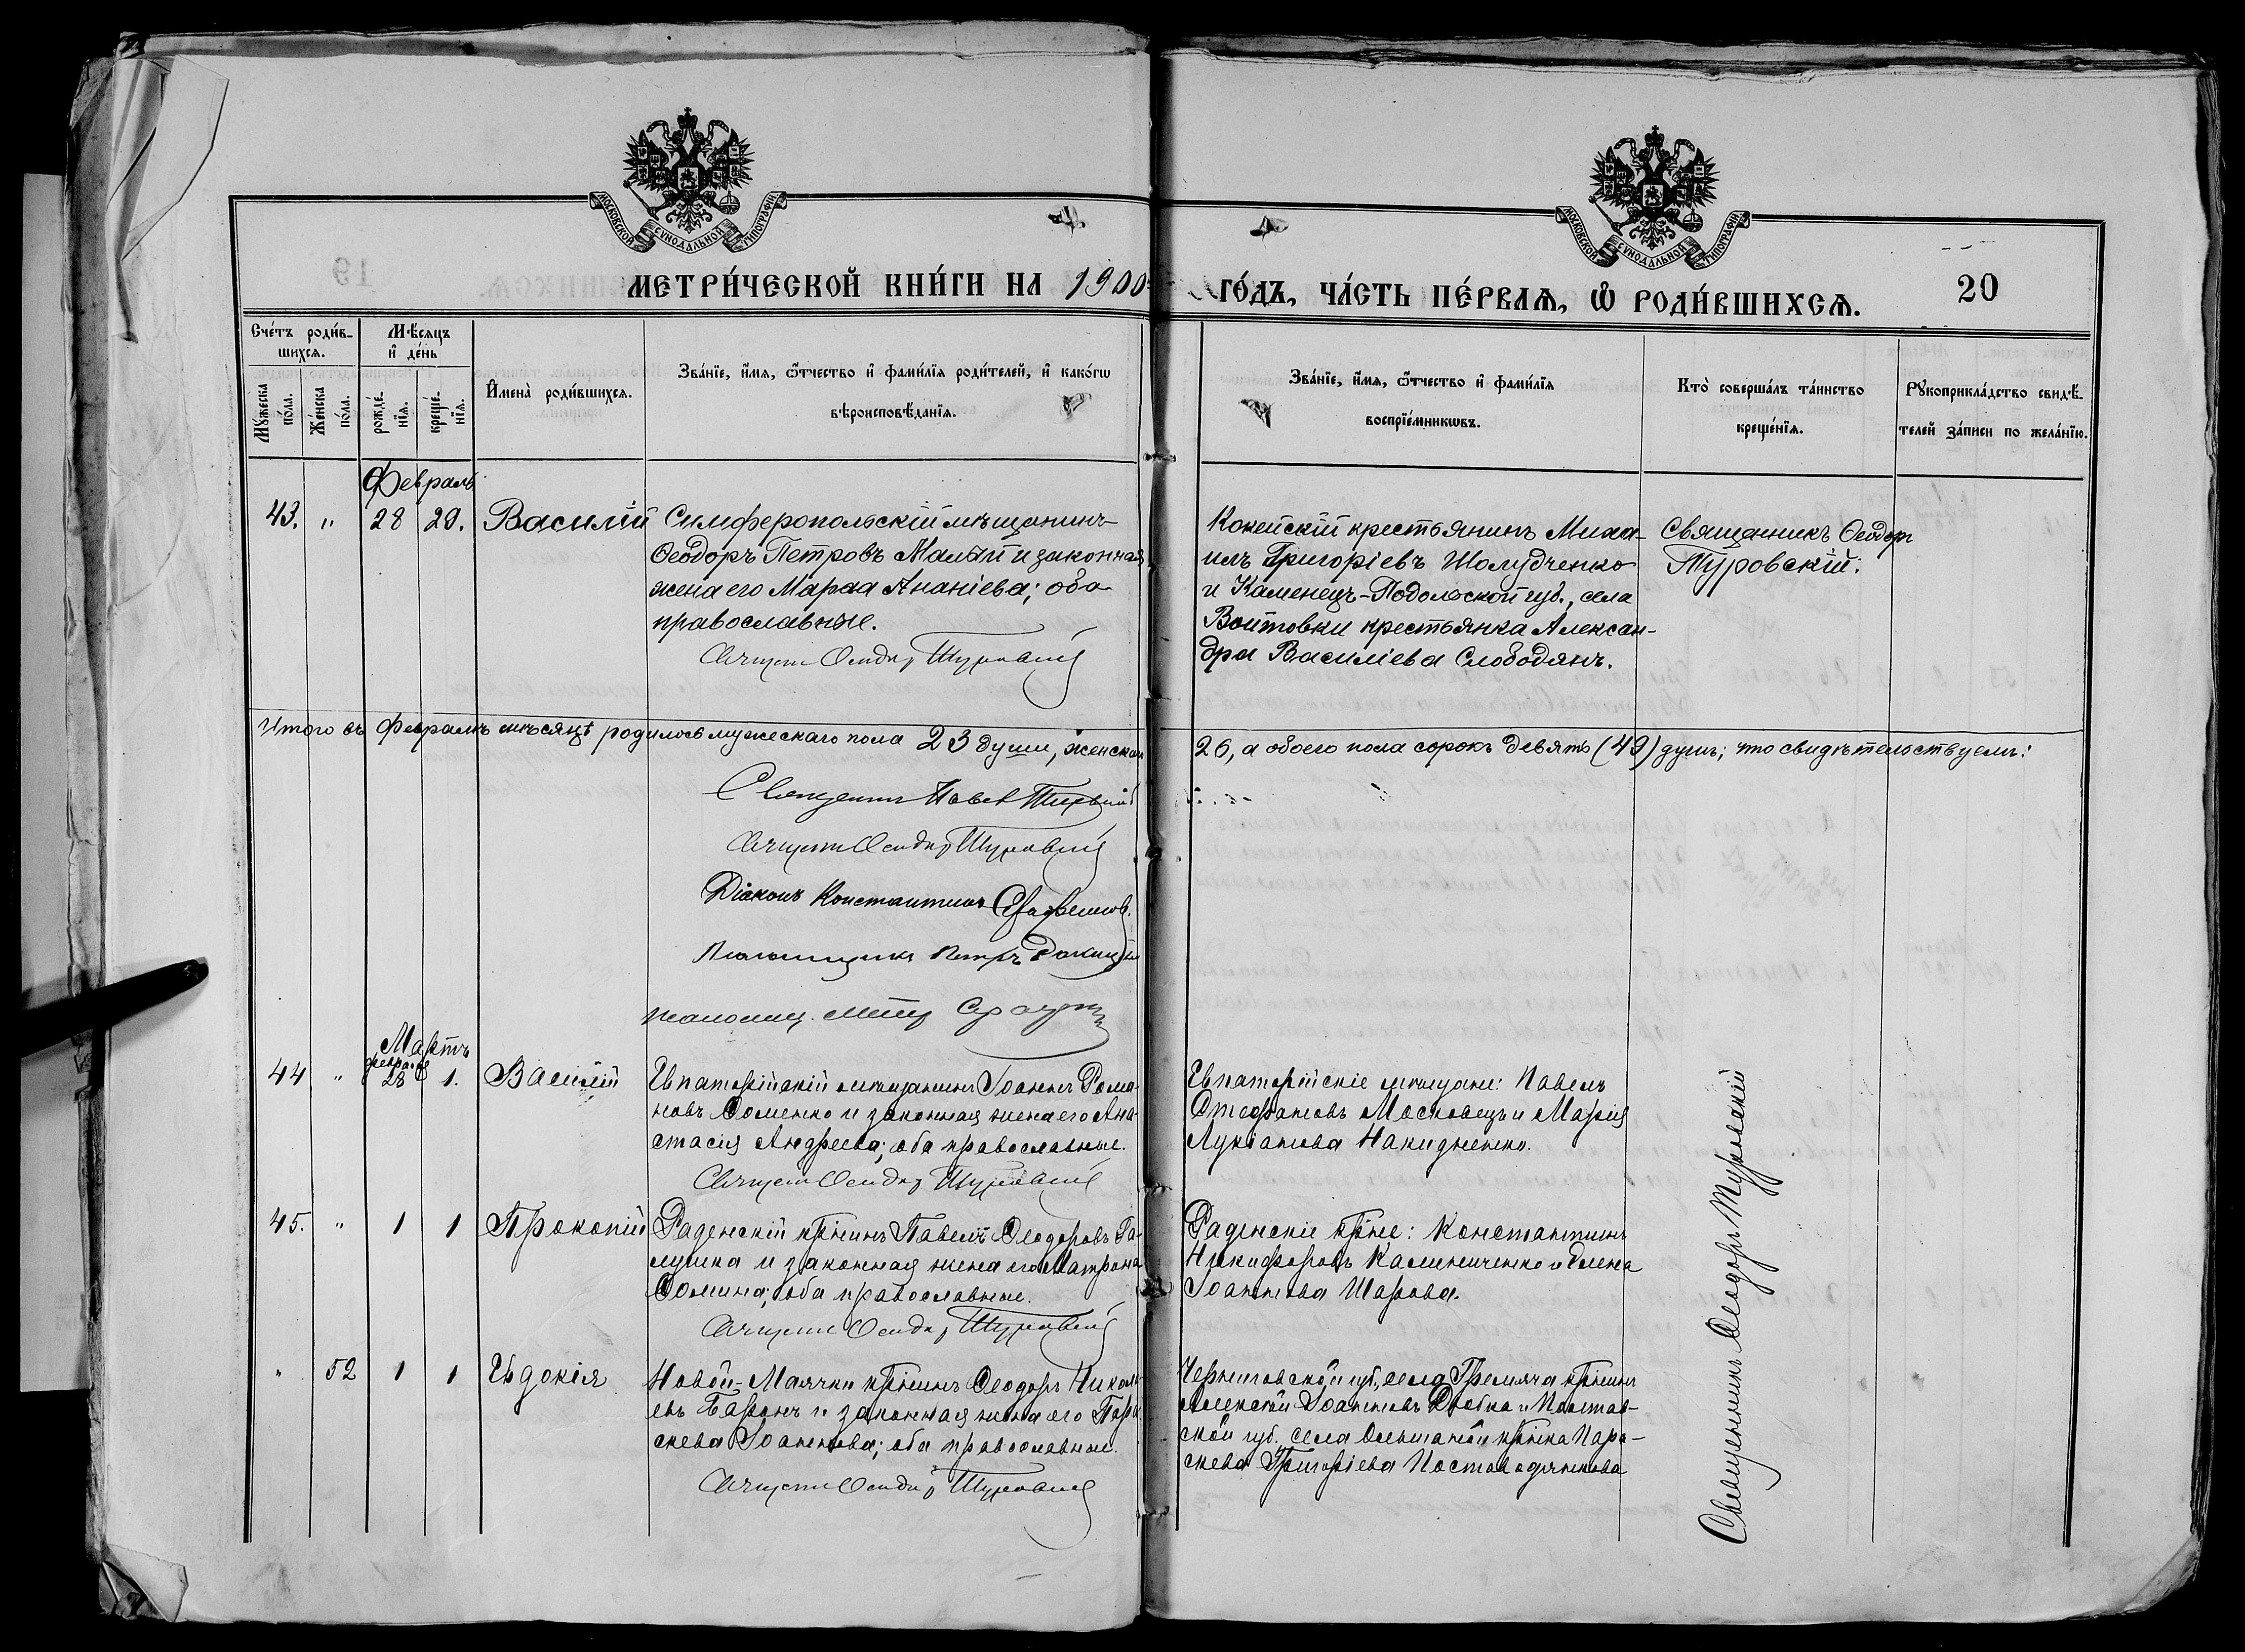 МОСКОВСКОЙ СУНОДАЛЬНОЙ ТИПОГРАФІИ
МОСКОВСКОЙ СУНОДАЛЬНОЙ ТИПОГРАФІИ
МЕТРИ́ЧЕСКОЙ КНИ́ГИ НА 1900
ГО́ДЪ, ЧА́СТЬ ПЕ́РВАѦ, Ѽ РОДИ́ВШИХСѦ.
20
Сче́тъ роди́в-
шихся.
Мѣ́сяцъ
и҆ де́нь
Мꙋ́жеска по́ла.
Же́нска по́ла.
рожде́-нїя.
креще́-нїя.
И҆мена̀ роди́вшихся.
Зва́нїе, и҆́мя, ѻ҆́тчество и҆ фами́лїя роди́телей, и҆ како́гѡ
вѣроисповѣ́данїя.
Зва́нїе, и҆́мя, ѻ҆́тчество и҆ фами́лїя
воспрїе́мникѡвъ.
Кто̀ соверша́лъ та́инство
креще́нїя.
Рꙋкоприкла́дство свидѣ́-
телей за́писи по жела́нїю.
Февраль
43. " 28 29. Василій
Симферопольскій мѣщанинъ
Ѳеодоръ Петровъ Малый и законная
жена его Марѳа Ананіева; оба
православные.
Священ Ѳеодоръ Туровскій
крестьянинъ Миха-
илъ Григоріевъ Шолудченко
и Каменецъ-Подольской губ., села
Войтовки крестьянка Алексан-
дра Василіева Слободянъ.
Священникъ Ѳеодоръ
Туровскій.
Итого въ Февралѣ мѣсяцѣ родилось мужескаго пола 23 души, женскаго
26, а обоего пола сорокъ девять (49) душъ; что свидѣтельствуемъ:
Священникъ Павел
Священ Ѳеодоръ Туровскій
Діаконъ Константинъ
Псаломщикъ Петръ
Псаломщ.
Мартъ
44 " февраля 28 1. Василій
Евпаторійскій мѣщанинъ Іоаннъ Рома-
новъ Соменко и законная жена его Ана-
стасія Андреева; оба православные.
Священ Ѳеодоръ Туровскій
Евпаторійскіе мѣщане: Павелъ
Стефановъ Московецъ и Марія
Лукіанова Накидненко.
45. " 1 1 Прокопій
Раденскій крнинъ Павелъ Ѳеодоровъ Га-
лушка и законная жена его Матрона
Ѳомина; оба православные.
Священ Ѳеодоръ Туровскій
Раденскіе крне: Константинъ
Никифоровъ Калиниченко и Елена
Іоаннова Шарова.
" 52 1 1 Евдокія
Новой-Маячки крнинъ Ѳеодоръ Никола-
евъ Баранъ и законная жена его Пара-
скева Іоаннова; оба православные.
Священ Ѳеодоръ Туровскій
Черниговской губ., села Гремяча крнинъ
Алексѣй Іоанновъ Дробка и Полтав-
ской губ. села Ольшаной крнка Пара-
скева Григоріева
Священникъ Ѳеодоръ Туровскій